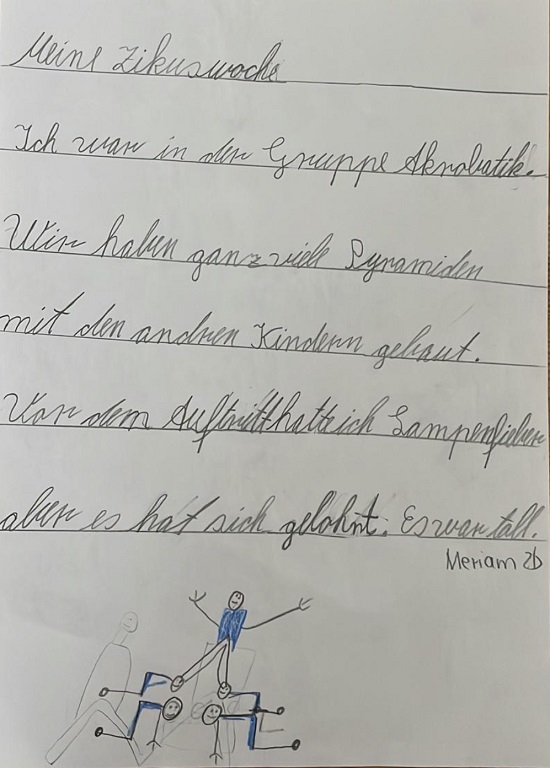 Meine Zikuswoche
Ich war in der Gruppe Akrobatik.
Wir haben ganz viele Pyramiden
mit den andren Kindern gebaut.
Vor dem Auftritt hatte ich Lampenfieber
aber es hat sich gelohnt. Es war toll.
Meriam 2b